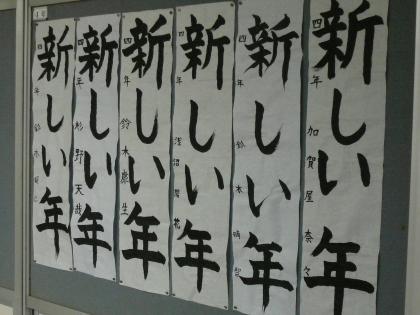 新しい年
四年 加賀屋 奈々
新しい年
四年 鈴木 晴
新しい年
四年
新しい年
四年 鈴木 康生
新しい年
四年 杉野 天哉
新しい年
四年 鈴木